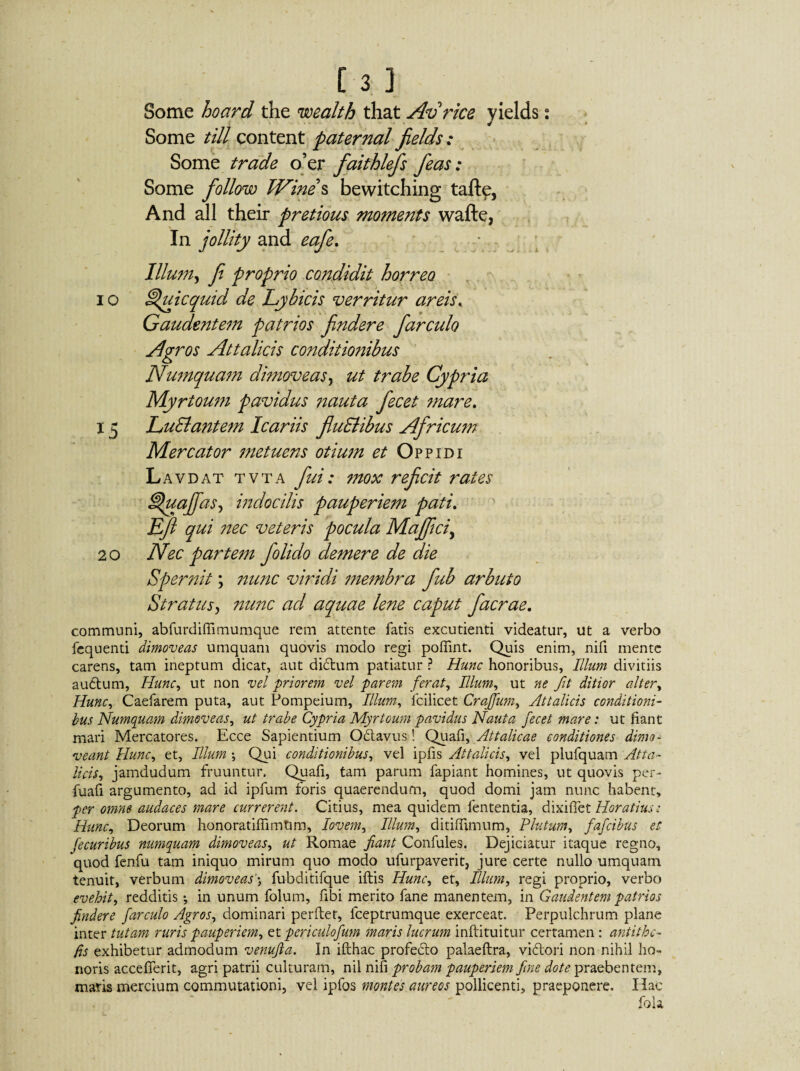 [ 3 ]
Some hoard the wealth that Av'rice yields:
Some till content paternal fields:
Some trade o'er faithleſs ſeas:
Some follow Wine's bewitching taſte,
And all their pretious moments waſte,
In jollity and eaſe.
Illum, ſi proprio condidit horreo
10 Quicquid de Lybicis verritur areis.
Gaudentem patrios findere ſarculo
Agros Attalicis conditionibus
Numquam dimoveas, ut trabe Cypria
Myrtoum pavidus nauta ſecet mare.
15 Luctantem Icariis fluctibus Africum
Mercator metuens otium et OPPIDI
LAVDAT TVTA ſui: mox reficit rates
Quaſſas, indocilis pauperiem pati.
Eſt qui nec veteris pocula Maſſici,
20 Nec partem ſolido demere de die
Spernit; nunc viridi membra ſub arbuto
Stratus, nunc ad aquae lene caput ſacrae.
communi, abſurdiſſimumque rem attente ſatis excutienti videatur, ut a verbo
ſequenti dimoveas umquam quovis modo regi poſſint. Quis enim, niſi mente
carens, tam ineptum dicat, aut dictum patiatur? Hunc honoribus, Illum divitiis
auctum, Hunc, ut non vel priorem vel parem ferat, Illum, ut ne ſit ditior alter,
Hunc, Caeſarem puta, aut Pompeium, Illum, ſcilicet Craſſum, Attalicis conditioni-
bus Numquam dimoveas, ut trabe Cypria Myrtoum pavidus Nauta ſecet mare: ut fiant
mari Mercatores. Ecce Sapientium Octavus! Quaſi, Attalicae conditiones dimo-
veant Hunc, et, Illum; Qui conditionibus, vel ipſis Attalicis, vel pluſquam Atta-
licis, jamdudum fruuntur. Quaſi, tam parum ſapiant homines, ut quovis per-
ſuaſi argumento, ad id ipſum foris quaerendum, quod domi jam nunc habent,
per omne audaces mare currerent. Citius, mea quidem ſententia, dixiſſet Horatius:
Hunc, Deorum honoratiſſimum, Iovem, Illum, ditiſſimum, Plutum, faſcibus et
ſecuribus numquam dimoveas, ut Romae fiant Conſules. Dejiciatur itaque regno,
quod ſenſu tam iniquo mirum quo modo uſurpaverit, jure certe nullo umquam
tenuit, verbum dimoveas; ſubditiſque iſtis Hunc, et, Illum, regi proprio, verbo
evehit, redditis; in unum ſolum, ſibi merito ſane manentem, in Gaudentem patrios
findere ſarculo Agros, dominari perſtet, ſceptrumque exerceat. Perpulchrum plane
inter tutam ruris pauperiem, et periculoſum maris lucrum inſtituitur certamen: antithe-
ſis exhibetur admodum venuſta. In iſthac profecto palaeſtra, victori non nihil ho-
noris acceſſerit, agri patrii culturam, nil niſi probam pauperiem ſine dote praebentem,
maris mercium commutationi, vel ipſos montes aureos pollicenti, praeponere. Hac
ſola